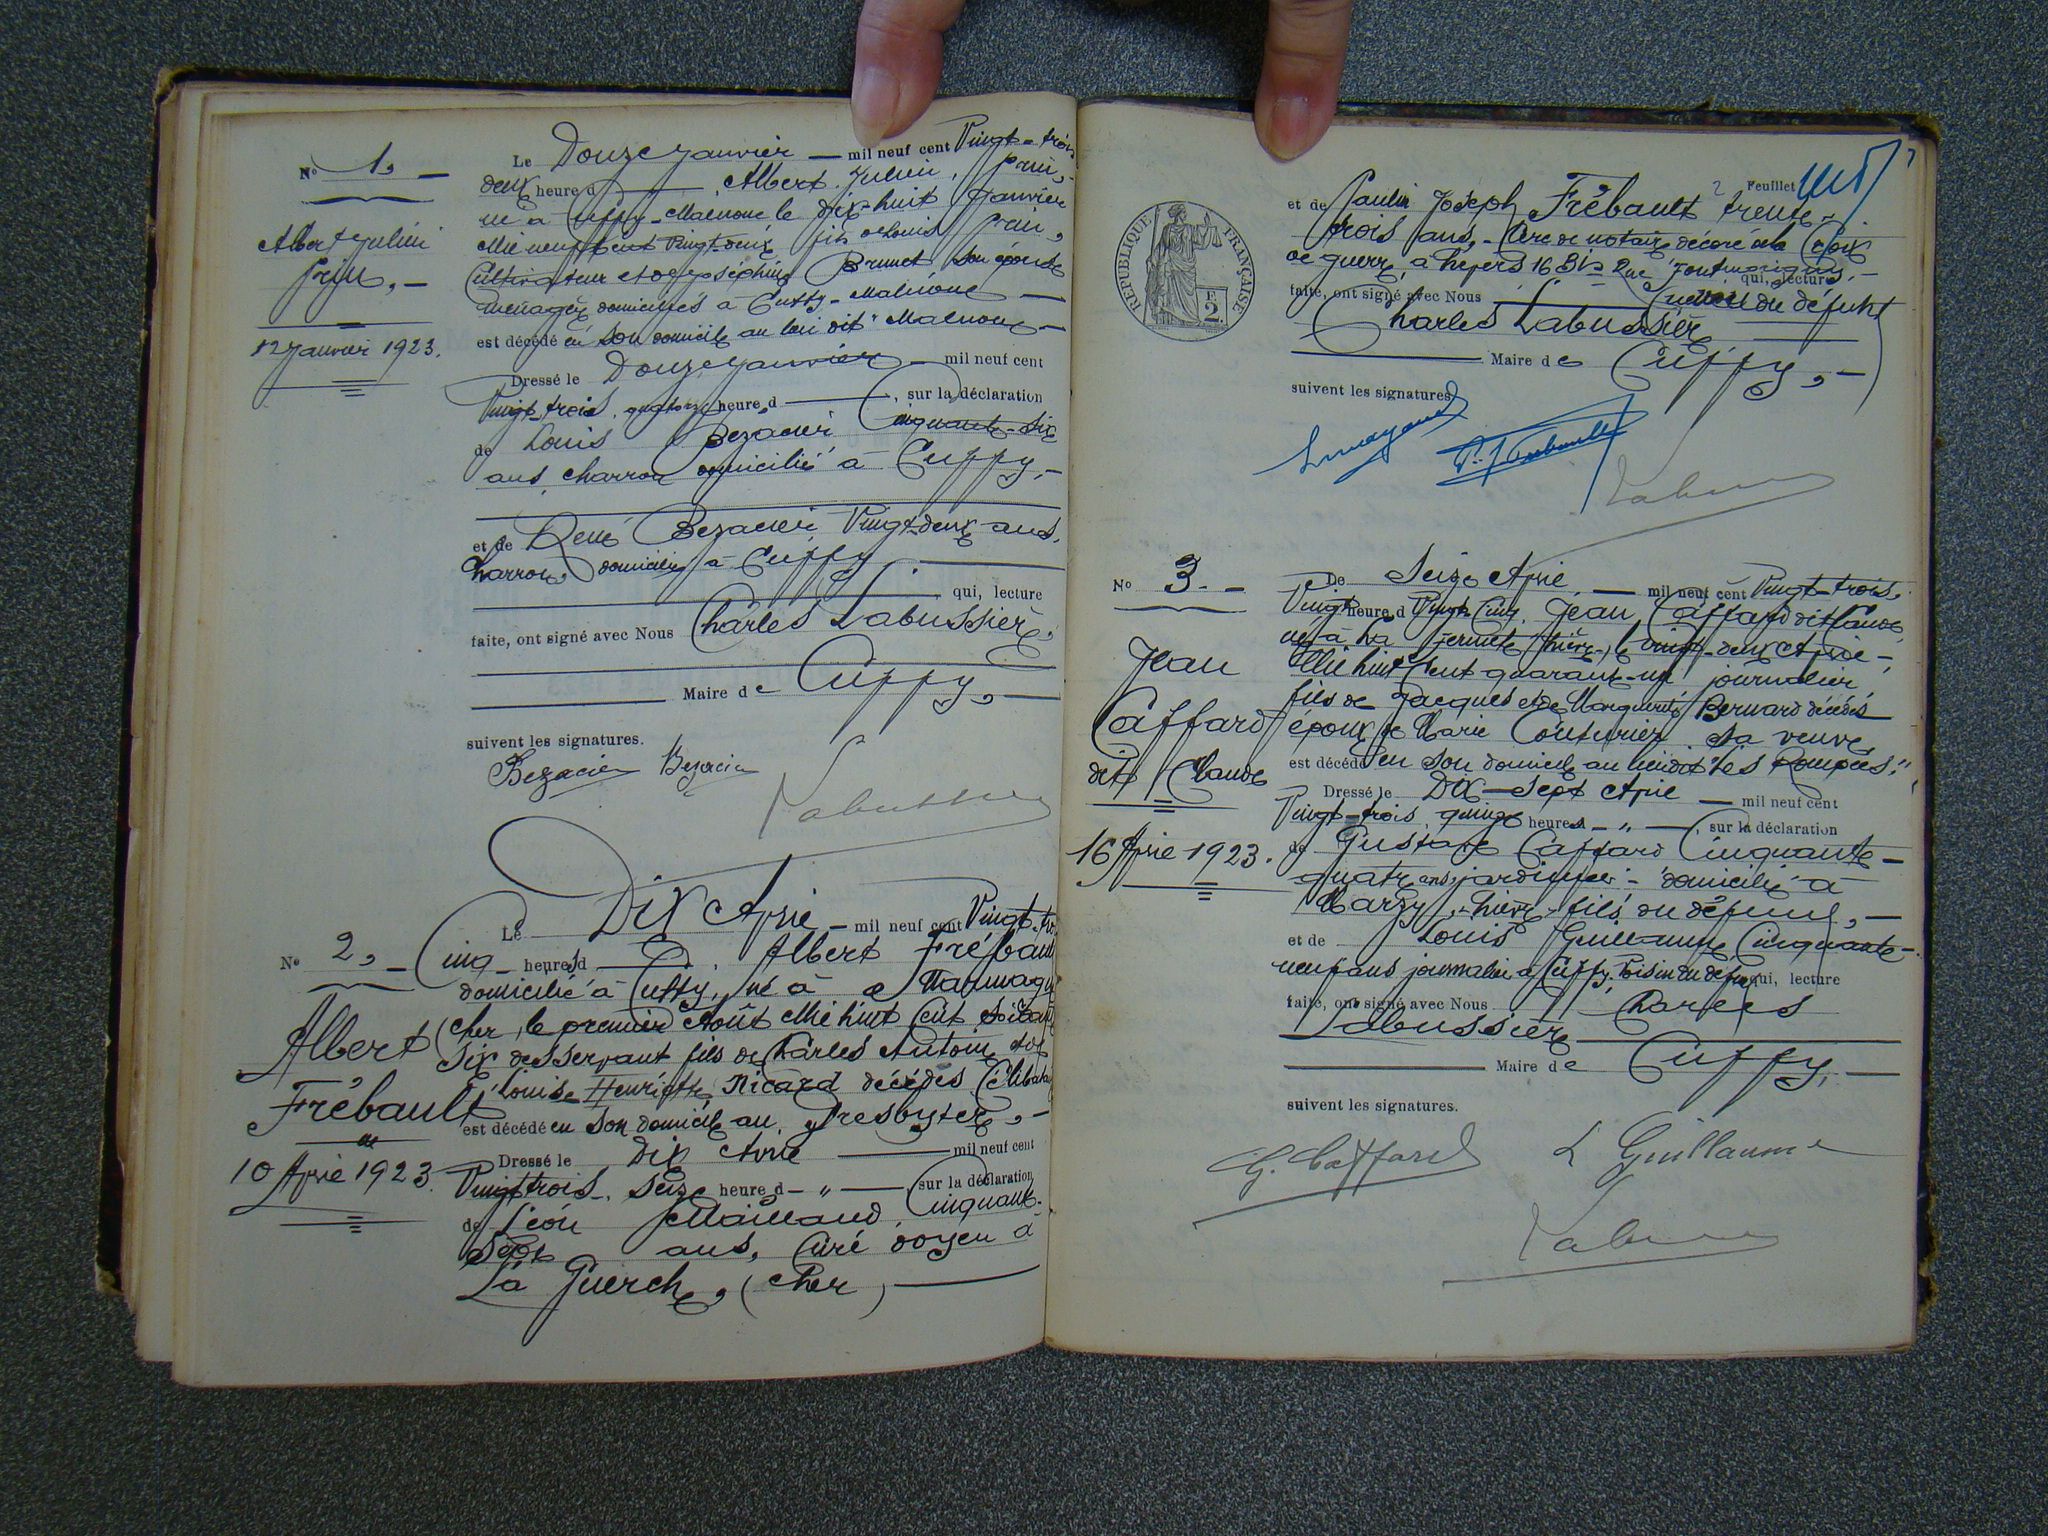 N° 1, —
Albert Julien
12 Janvier 1923.
Le Douze Janvier — mil neuf cent Vingt-trois
deux heure d — Albert Julien,
né à Cuffy-Malnoue le dix-huit Janvier
Mil neuf cent Vingt-deux fils de Louis
Cultivateur et de Joséphine Brunet son épouse
ménagère domiciliés à Cuffy-Malnoue —
est décédé en son domicile au lieu dit "Malnoue —
Dressé le Douze Janvier — mil neuf cent
Vingt-trois, quatorze heure d —, sur la déclaration
de Louis Bezacier Cinquante-six
ans, charron domicilié à Cuffy, —
et de René Bezacier, Vingt-deux ans,
charron, domicilié à Cuffy —
qui, lecture
faite, ont signé avec Nous Charles Labussière,
Maire de Cuffy, —
suivent les signatures.
Bezacier Bezacier
N° 2, —
Albert
Frébault
10 Avril 1923
Le Dix Avril — mil neuf cent
Cinq heures d — Albert Frébault
domicilié à Cuffy, né à
Cher, le premier Août Mil huit Cent
six desservant fils de Charles Antoine et de
Louise Henriette Ricard décédés
est décédé en son domicile au Presbytère, —
Dressé le Dix Avril — mil neuf cent
Vingt trois, Seize heure d — " —, sur la déclaration
de Léon Cinquante-
sept ans, Curé doyen à
La Guerche, (Cher) —
Feuillet
RÉPUBLIQUE FRANÇAISE
2
et de Paulin Joseph Frébault trente-
trois ans, Clerc de notaire décoré de la Croix
de guerre, à 16 Bis Rue
qui, lecture
faite, ont signé avec Nous — (neveu du défunt)
Charles Labussière
Maire de Cuffy, —
suivent les signatures
N° 3. —
Jean
Caffard
dit Claude
16 Avril 1923.
Le Seize Avril — mil neuf cent Vingt-trois,
Vingt heure d Vingt Cinq, Jean Caffard dit Claude
né à La Fermeté Nièvre, le vingt-deux Avril —,
Mil huit Cent quarante-un journalier
fils de Jacques et de Marguerite Bernard décédés
époux de Marie Couturier sa veuve,
est décédé en son domicile au lieu dit "les Rompées."
Dressé le Dix-Sept Avril — mil neuf cent
Vingt-trois, quinze heures — " —, sur la déclaration
de Gustave Caffard Cinquante-
quatre ans, jardinier domicilié à
Marzy, Nièvre fils du défunt, —
et de Louis Guillaume Cinquante-
neuf ans journalier à Cuffy, Voisin du défunt, qui, lecture
faite, ont signé avec Nous Charles
Labussière
Maire de Cuffy, —
suivent les signatures.
G. Caffard L Guillaume